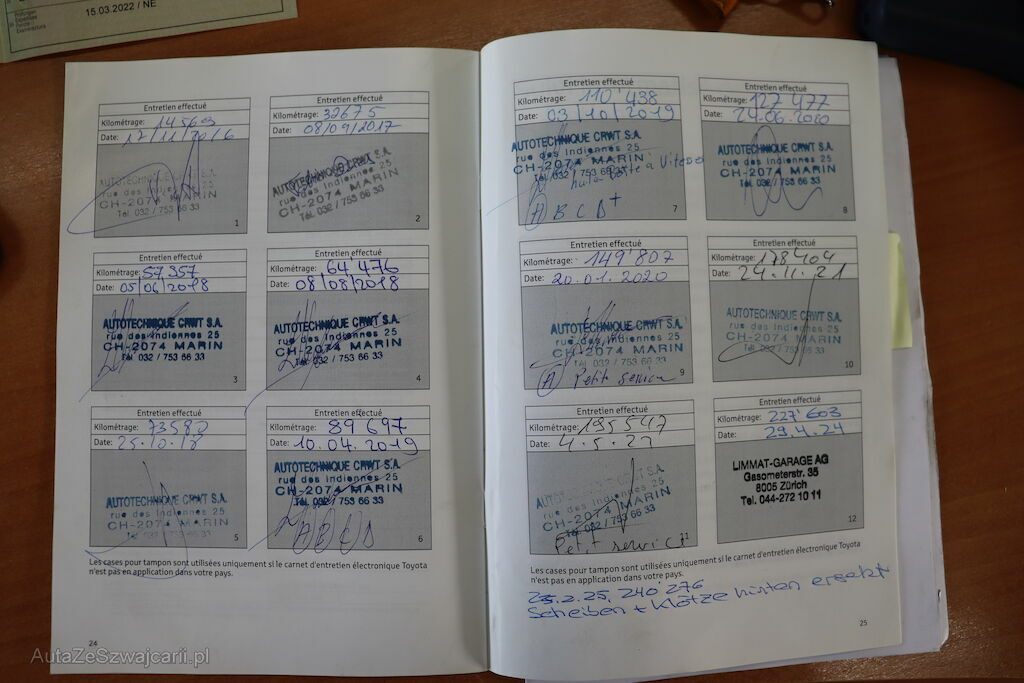 15.03.2022 / NE
Entretien effectué
Kilométrage: 14569
Date: 17/11/2016
AUTOTECHNIQUE CRWT S.A.
rue des Indiennes 25
CH-2074 MARIN
Tél. 032 / 753 66 33
1
Entretien effectué
Kilométrage: 32675
Date: 08/09/2017
AUTOTECHNIQUE CRWT S.A.
rue des Indiennes 25
CH-2074 MARIN
Tél. 032 / 753 66 33
2
Entretien effectué
Kilométrage: 57357
Date: 05/06/2018
AUTOTECHNIQUE CRWT S.A.
rue des Indiennes 25
CH-2074 MARIN
Tél. 032 / 753 66 33
3
Entretien effectué
Kilométrage: 64'476
Date: 08/08/2018
AUTOTECHNIQUE CRWT S.A.
rue des Indiennes 25
CH-2074 MARIN
Tél. 032 / 753 66 33
4
Entretien effectué
Kilométrage: 73582
Date: 25.10.18
AUTOTECHNIQUE CRWT S.A.
rue des Indiennes 25
CH-2074 MARIN
Tél. 032 / 753 66 33
5
Entretien effectué
Kilométrage: 89'697
Date: 10.04.2019
AUTOTECHNIQUE CRWT S.A.
rue des Indiennes 25
CH-2074 MARIN
Tél. 032 / 753 66 33
A B C D
6
Les cases pour tampon sont utilisées uniquement si le carnet d'entretien électronique Toyota
n'est pas en application dans votre pays.
24
Entretien effectué
Kilométrage: 110'438
Date: 03/10/2019
AUTOTECHNIQUE CRWT S.A.
rue des Indiennes 25
CH-2074 MARIN
Tél. 032 / 753 66 33
boîte à Vitesse
A B C D +
7
Entretien effectué
Kilométrage: 127'477
Date: 24.06.2020
AUTOTECHNIQUE CRWT S.A.
rue des Indiennes 25
CH-2074 MARIN
Tél. 032 / 753 66 33
8
Entretien effectué
Kilométrage: 149'807
Date: 20.01.2020
AUTOTECHNIQUE CRWT S.A.
rue des Indiennes 25
CH-2074 MARIN
Tél. 032 / 753 66 33
A Petit service
9
Entretien effectué
Kilométrage: 178404
Date: 24.11.21
AUTOTECHNIQUE CRWT S.A.
rue des Indiennes 25
CH-2074 MARIN
Tél. 032 / 753 66 33
10
Entretien effectué
Kilométrage: 195547
Date:
AUTOTECHNIQUE CRWT S.A.
rue des Indiennes 25
CH-2074 MARIN
Tél. 032 / 753 66 33
Petit service
11
Entretien effectué
Kilométrage: 227'603
Date: 29.4.24
LIMMAT-GARAGE AG
Gasometerstr. 35
8005 Zürich
Tel. 044-272 10 11
12
Les cases pour tampon sont utilisées uniquement si le carnet d'entretien électronique Toyota
n'est pas en application dans votre pays.
240'276
Scheiben + Klötze hinten ersetzt
25
AutaZeSzwajcarii.pl